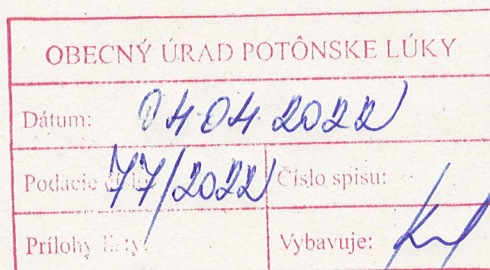 OBECNÝ ÚRAD POTÔNSKE LÚKY
Dátum: 04.04.2022
Podacie 77/2022 Číslo spisu:
Prílohy Vybavuje: